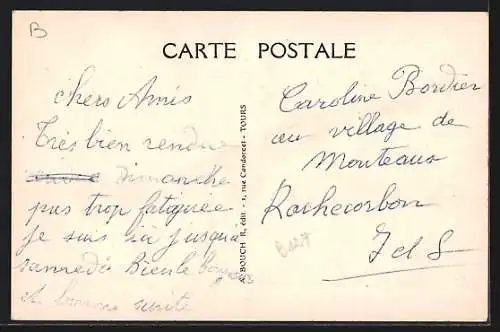 B
CARTE POSTALE
chers Amis
Très bien rendue
Dimanche
pas trop fatiguée
je suis ici jusqu'à
samedi Bien le bonjour
et bonne suite
A. BOUCH R, édit. - 1, rue Condorcet - TOURS
Caroline Bordier
au village de
Monteaux
Rochecorbon
I et L